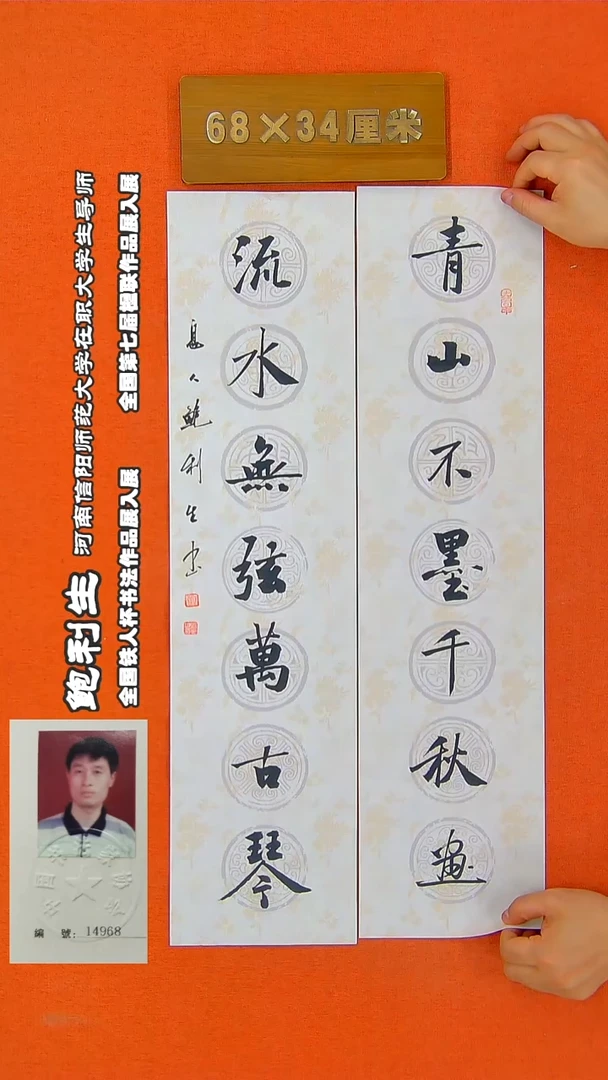 68×34厘米
青山不墨千秋画
流水無弦萬古琴
息人鲍利生书
鲍利生 河南信阳师范大学在职大学生导师
全国铁人杯书法作品展入展 全国第七届楹联作品展入展
編 號: 14968